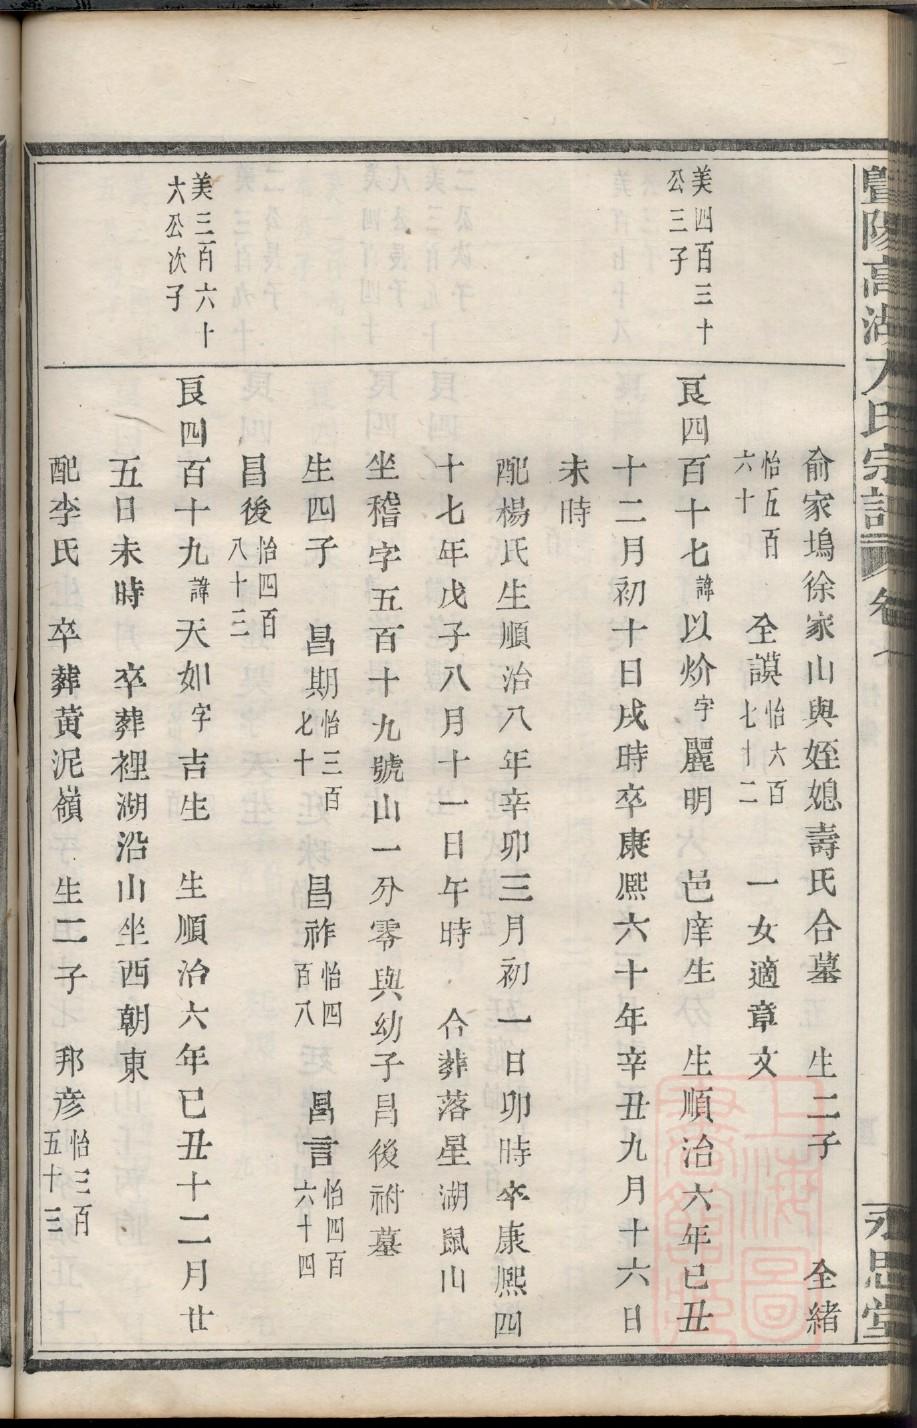 暨陽高湖方氏宗譜
永思堂
俞家塢徐家山與姪媳壽氏合墓 生二子 全緒
怡五百六十 全謨怡六百七十二 一女適章文
美四百三十公三子
良四百十七諱以炌字麗明 邑庠生 生順治六年已丑
十二月初十日戌時卒康熙六十年辛丑九月十六日
未時
配楊氏生順治八年辛卯三月初一日卯時卒康熙四
十七年戊子八月十一日午時 合葬落星湖鼠山
坐稽字五百十九號山一分零與幼子昌後祔墓
生四子 昌期怡三百七十 昌祚怡四百八 昌言怡四百六十四
昌後怡四百八十二
美三百六十六公次子
良四百十九諱天如字吉生 生順治六年已丑十二月廿
五日未時 卒葬裡湖沿山坐西朝東
配李氏 卒葬黄泥嶺 生二子 邦彦怡三百五十三